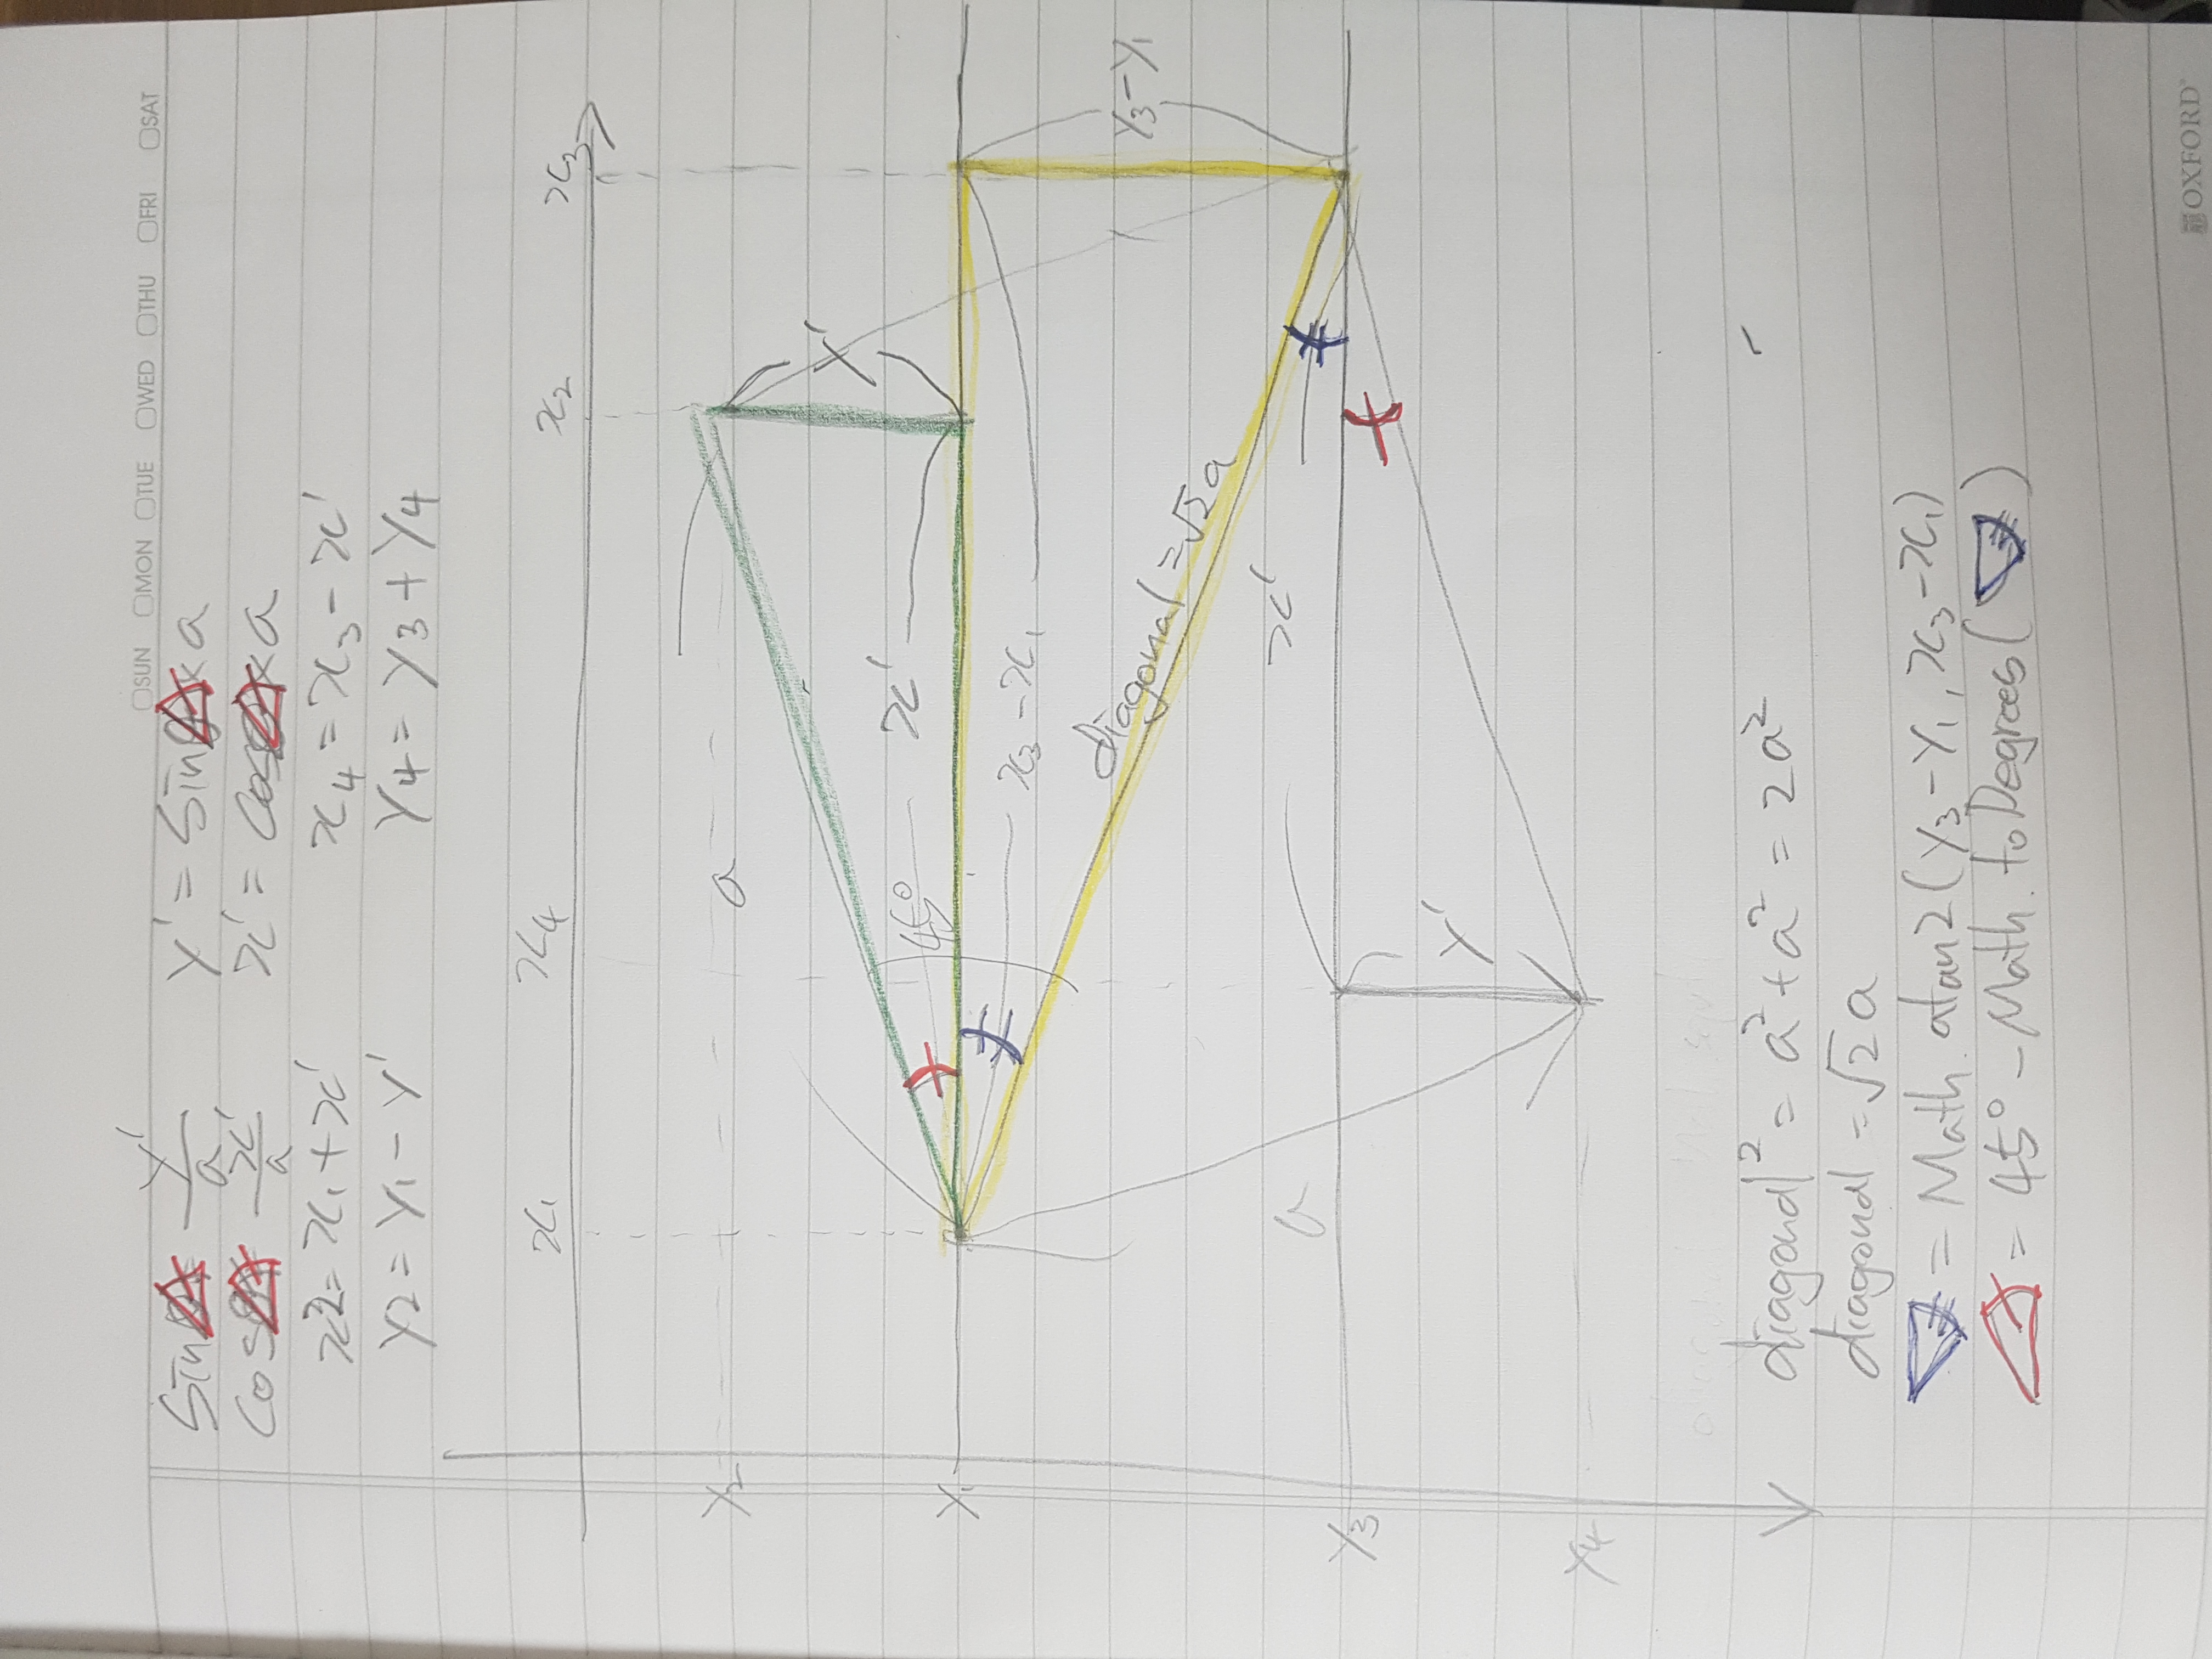 SUN MON TUE WED THU FRI SAT
Sin△ = y'/a y' = Sin△×a
Cos△ = x'/a x' = Cos△×a
x2 = x₁ + x' x₄ = x₃ - x'
Y2 = Y₁ - Y' Y4 = Y3 + Y4
x₁ x₄ x₂ x₃
Y₂ a
Y'
x'
45°
Y₁
x₃ - x₁
diagonal = √2a
Y₃ - Y₁
a x'
Y₃
Y'
Y₄
diagonal² = a² + a² = 2a²
diagonal = √2 a
▽ = Math.atan2(Y₃ - Y₁, x₃ - x₁)
△ = 45° - Math.toDegrees(▽)
OXFORD